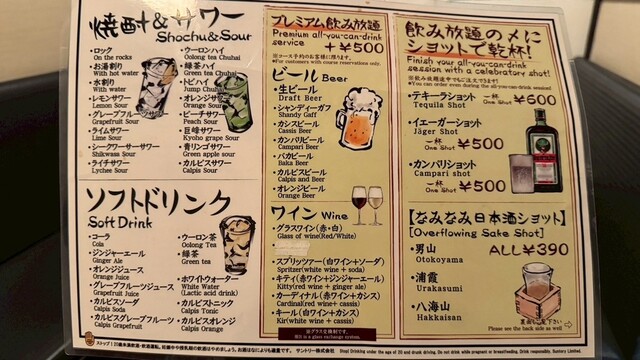 焼酎&サワー
Shochu&Sour
・ロック
On the rocks
・お湯割り
With hot water
・水割り
With water
・レモンサワー
Lemon Sour
・グレープフルーツサワー
Grapefruit Sour
・ライムサワー
Lime Sour
・シークワーサーサワー
Shikwasa Sour
・ライチサワー
Lychee Sour
・ウーロンハイ
Oolong tea Chuhai
・緑茶ハイ
Green tea Chuhai
・トビハイ
Jump Chuhai
・オレンジサワー
Orange Sour
・ピーチサワー
Peach Sour
・巨峰サワー
Kyoho grape Sour
・青リンゴサワー
Green apple sour
・カルピスサワー
Calpis Sour
ソフトドリンク
Soft Drink
・コーラ
Cola
・ジンジャーエール
Ginger Ale
・オレンジジュース
Orange Juice
・グレープフルーツジュース
Grapefruit Juice
・カルピスソーダ
Calpis Soda
・カルピスグレープフルーツ
Calpis Grapefruit
・ウーロン茶
Oolong Tea
・緑茶
Green tea
・ホワイトウォーター
White Water
(Lactic acid drink)
・カルピストニック
Calpis Tonic
・カルピスオレンジ
Calpis Orange
プレミアム飲み放題
Premium all-you-can-drink
service +¥500
※コース予約のお客様に限ります。
*For customers with course reservations only.
ビール Beer
・生ビール
Draft Beer
・シャンディーガフ
Shandy Gaff
・カシスビール
Cassis Beer
・カンパリビール
Campari Beer
・バカビール
Baka Beer
・カルピスビール
Calpis and Beer
・オレンジビール
Orange Beer
ワイン Wine
・グラスワイン(赤・白)
Glass of wine(Red/White)
・スプリッツァー(白ワイン+ソーダ)
Spritzer(white wine + soda)
・キティ(赤ワイン+ジンジャーエール)
Kitty(red wine + ginger ale)
・カーディナル(赤ワイン+カシス)
Cardinal(red wine+ cassis)
・キール(白ワイン+カシス)
Kir(white wine + cassis)
※グラス交換制です。
*It is a glass exchange system.
飲み放題の〆に
ショットで乾杯!
Finish your all-you-can-drink
session with a celebratory shot!
※飲み放題途中でもご注文できます!
*You can order even during the all-you-can-drink session!
・テキーラショット 一杯 ¥600
Tequila Shot One Shot
・イエーガーショット
Jäger Shot
一杯 ¥500
One Shot
・カンパリショット
Campari shot
一杯 ¥500
One Shot
【なみなみ日本酒ショット】
[Overflowing Sake Shot]
・男山 ALL¥390
Otokoyama
・浦霞
Urakasumi
・八海山
Hakkaisan
裏面もご覧下さい
Please see the back side as well